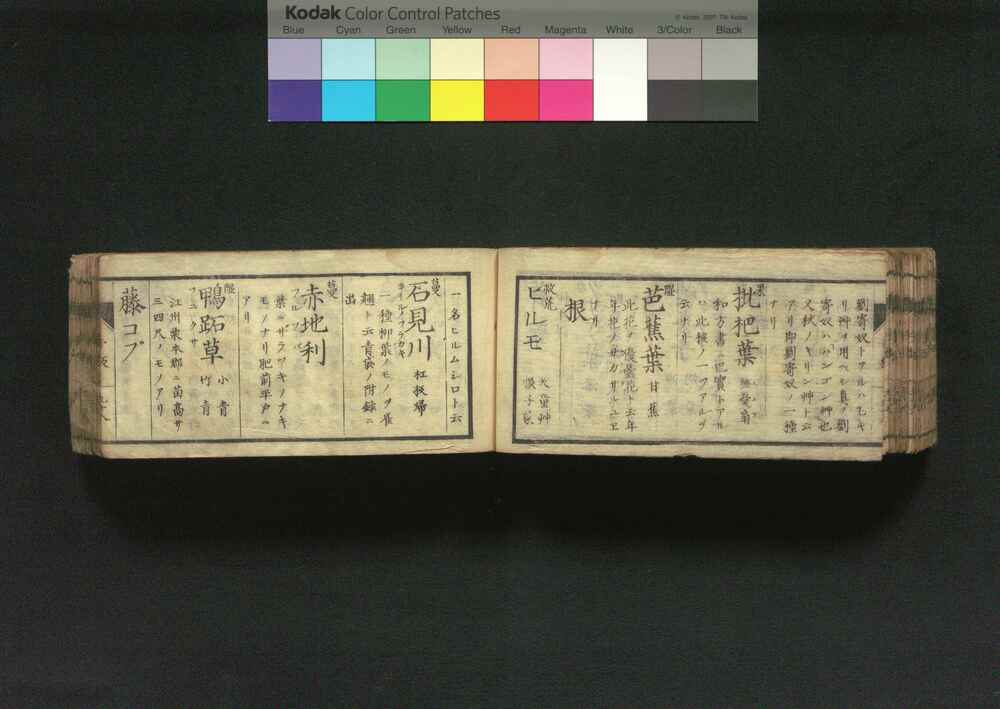 Kodak Color Control Patches
© Kodak, 2007 TM: Kodak
Blue Cyan Green Yellow Red Magenta White 3/Color Black
劉寄奴トアルハ乙キ
リ艸ヲ用ベシ真ノ劉
寄奴ハハンゴン艸也
又秋ノキリン艸ト云
アリ即劉寄奴ノ一種
ナリ
枇杷葉
和方書ニ巴實トアル
ハ此核ノ一ツアルヲ
云ナリ
隰
芭蕉葉 甘蕉
此花ヲ優曇花ト云年
ナリ
根
救荒
ヒルモ
一名ヒルムシロト云
蔓
石見川 杠板歸
一種柳葉ノモノヲ雀
翹ト云青蛮ノ附錄ニ
出
蔓
赤地利
葉ニザラツキノナキ
モノナリ肥前平戸ニ
アリ
隰
鴨跖草 小青 竹青
江州栗本郡ニ苗高サ
三四尺ノモノアリ
藤コブ